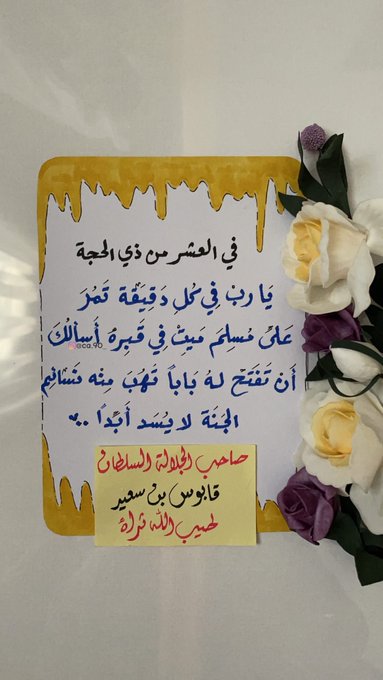 في العشر من ذي الحجة
يَا رب فِي كُلِ دَقِيقَة تَمُرَ
عَلىٰ مُسلِمَ مَيتْ فِي قَبِرهُ أَسألُكَ
أَن تَفْتَحْ لهُ بَاباً تَهُبَ مِنه نَسَائِم
الجَنَة لا يُسَد أَبَدًا ..
صاحب الجلالة السلطان
قابوس بن سعيد
طيب الله ثراهُ